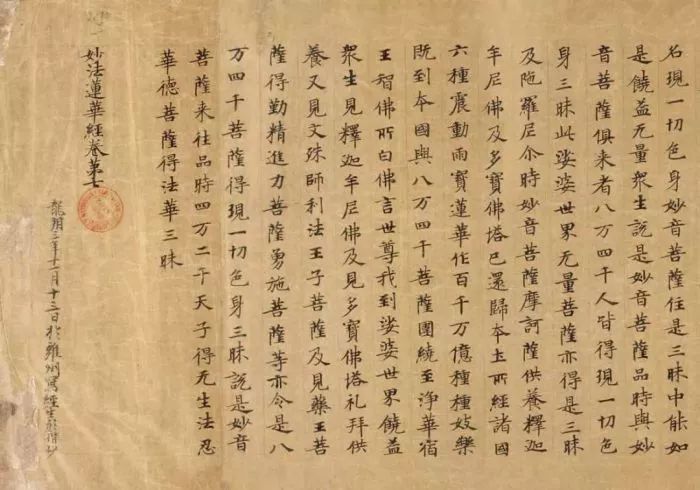 名現一切色身妙音菩薩住是三昧中能如
是饒益无量衆生說是妙音菩薩品時與妙
音菩薩俱来者八万四千人皆得現一切色
身三昧此娑婆世界无量菩薩亦得是三昧
及陁羅尼尒時妙音菩薩摩訶薩供養釋迦
牟尼佛及多寶佛塔已還歸本土所經諸國
六種震動雨寶蓮華作百千万億種種妓樂
既到本國與八万四千菩薩圍繞至淨華宿
王智佛所白佛言世尊我到娑婆世界饒益
衆生見釋迦牟尼佛及見多寶佛塔礼拜供
養又見文殊師利法王子菩薩及見藥王菩
薩得勤精進力菩薩勇施菩薩等亦令是八
万四千菩薩得現一切色身三昧說是妙音
菩薩来往品時四万二千天子得无生法忍
華德菩薩得法華三昧
妙法蓮華經卷第七
龍朔三年十一月十三日於雍州寫經生